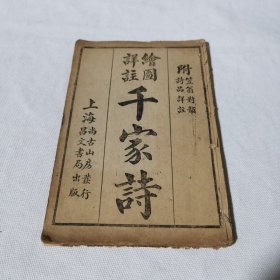 附
笠翁對類
詩品詳註
繪圖
詳註
千家詩
上海
尚古山房發行
昌文書局出版